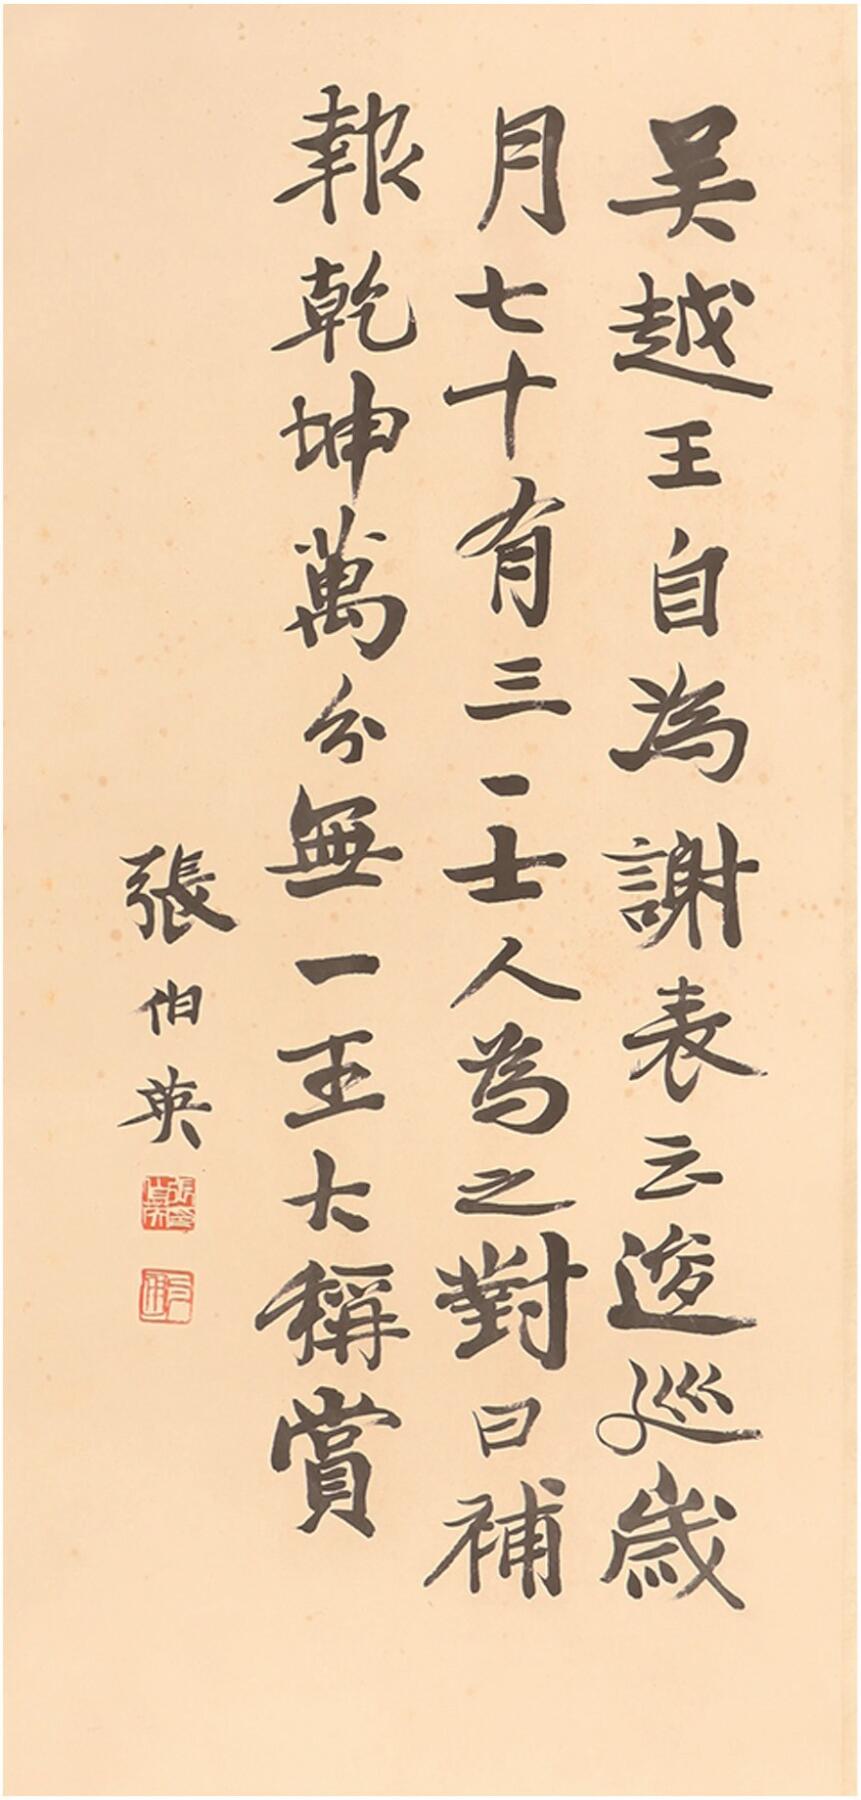 吴越王自為謝表云逡巡歲
月七十有三一士人為之對曰補
報乾坤萬分無一王大稱賞
張伯英